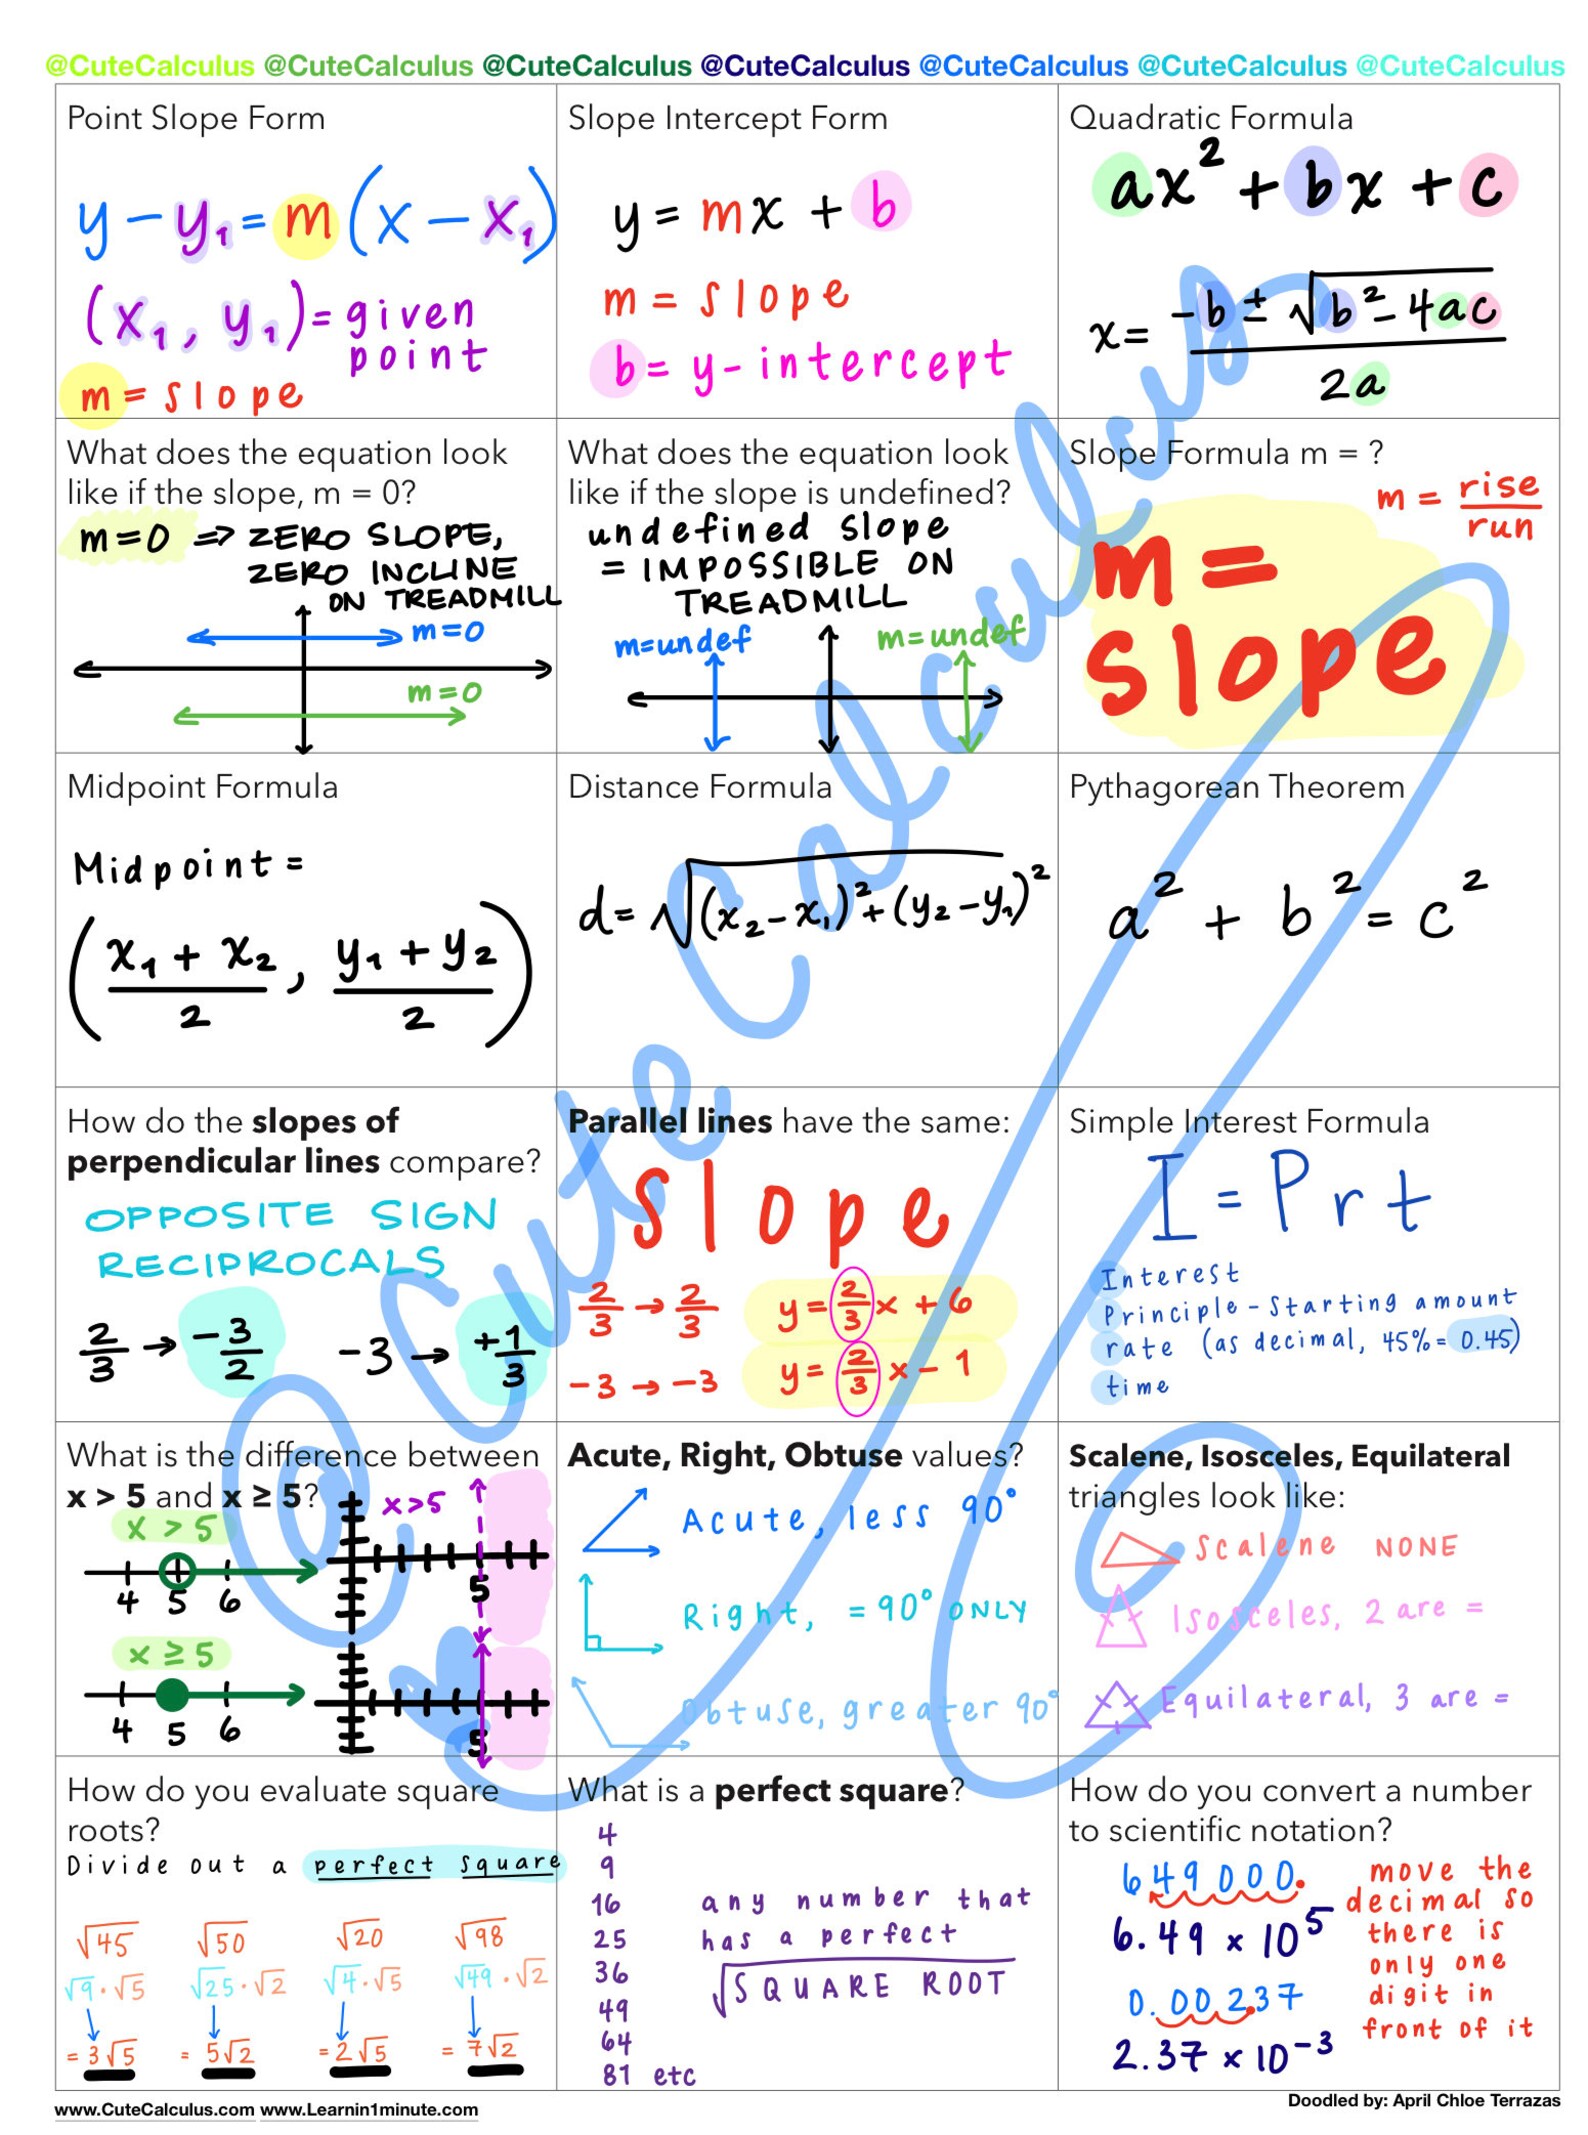 @CuteCalculus @CuteCalculus @CuteCalculus @CuteCalculus @CuteCalculus @CuteCalculus @CuteCalculus
Point Slope Form
y - y₁ = m(x - x₁)
(x₁, y₁) = given
point
m = slope
Slope Intercept Form
y = mx + b
m = slope
b = y-intercept
Quadratic Formula
ax² + bx + c
x = (-b ± √(b² - 4ac)) / 2a
What does the equation look
like if the slope, m = 0?
m=0 ⇒ ZERO SLOPE,
ZERO INCLINE
ON TREADMILL
m=0
m=0
What does the equation look
like if the slope is undefined?
undefined slope
= IMPOSSIBLE ON
TREADMILL
m=undef
m=undef
Slope Formula m = ?
m = rise/run
m =
slope
Midpoint Formula
Midpoint =
((x₁ + x₂)/2, (y₁ + y₂)/2)
Distance Formula
d = √((x₂ - x₁)² + (y₂ - y₁)²)
Pythagorean Theorem
a² + b² = c²
How do the slopes of
perpendicular lines compare?
OPPOSITE SIGN
RECIPROCALS
2/3 → -3/2 -3 → +1/3
Parallel lines have the same:
slope
2/3 → 2/3 y = 2/3 x + 6
-3 → -3 y = 2/3 x - 1
Simple Interest Formula
I = Prt
Interest
Principle - Starting amount
rate (as decimal, 45% = 0.45)
time
What is the difference between
x > 5 and x ≥ 5?
x > 5
4 5 6
x>5
5
x ≥ 5
4 5 6
5
Acute, Right, Obtuse values?
Acute, less 90°
Right, = 90° ONLY
Obtuse, greater 90°
Scalene, Isosceles, Equilateral
triangles look like:
Scalene NONE
Isosceles, 2 are =
Equilateral, 3 are =
How do you evaluate square
roots?
Divide out a perfect square
√45 √50 √20 √98
√9·√5 √25·√2 √4·√5 √49·√2
= 3√5 = 5√2 = 2√5 = 7√2
What is a perfect square?
4
9
16
25
36
49
64
81 etc
any number that
has a perfect
√SQUARE ROOT
How do you convert a number
to scientific notation?
649000.
6.49 x 10⁵
0.00237
2.37 x 10⁻³
move the
decimal so
there is
only one
digit in
front of it
@CuteCalculus
www.CuteCalculus.com www.Learnin1minute.com
Doodled by: April Chloe Terrazas